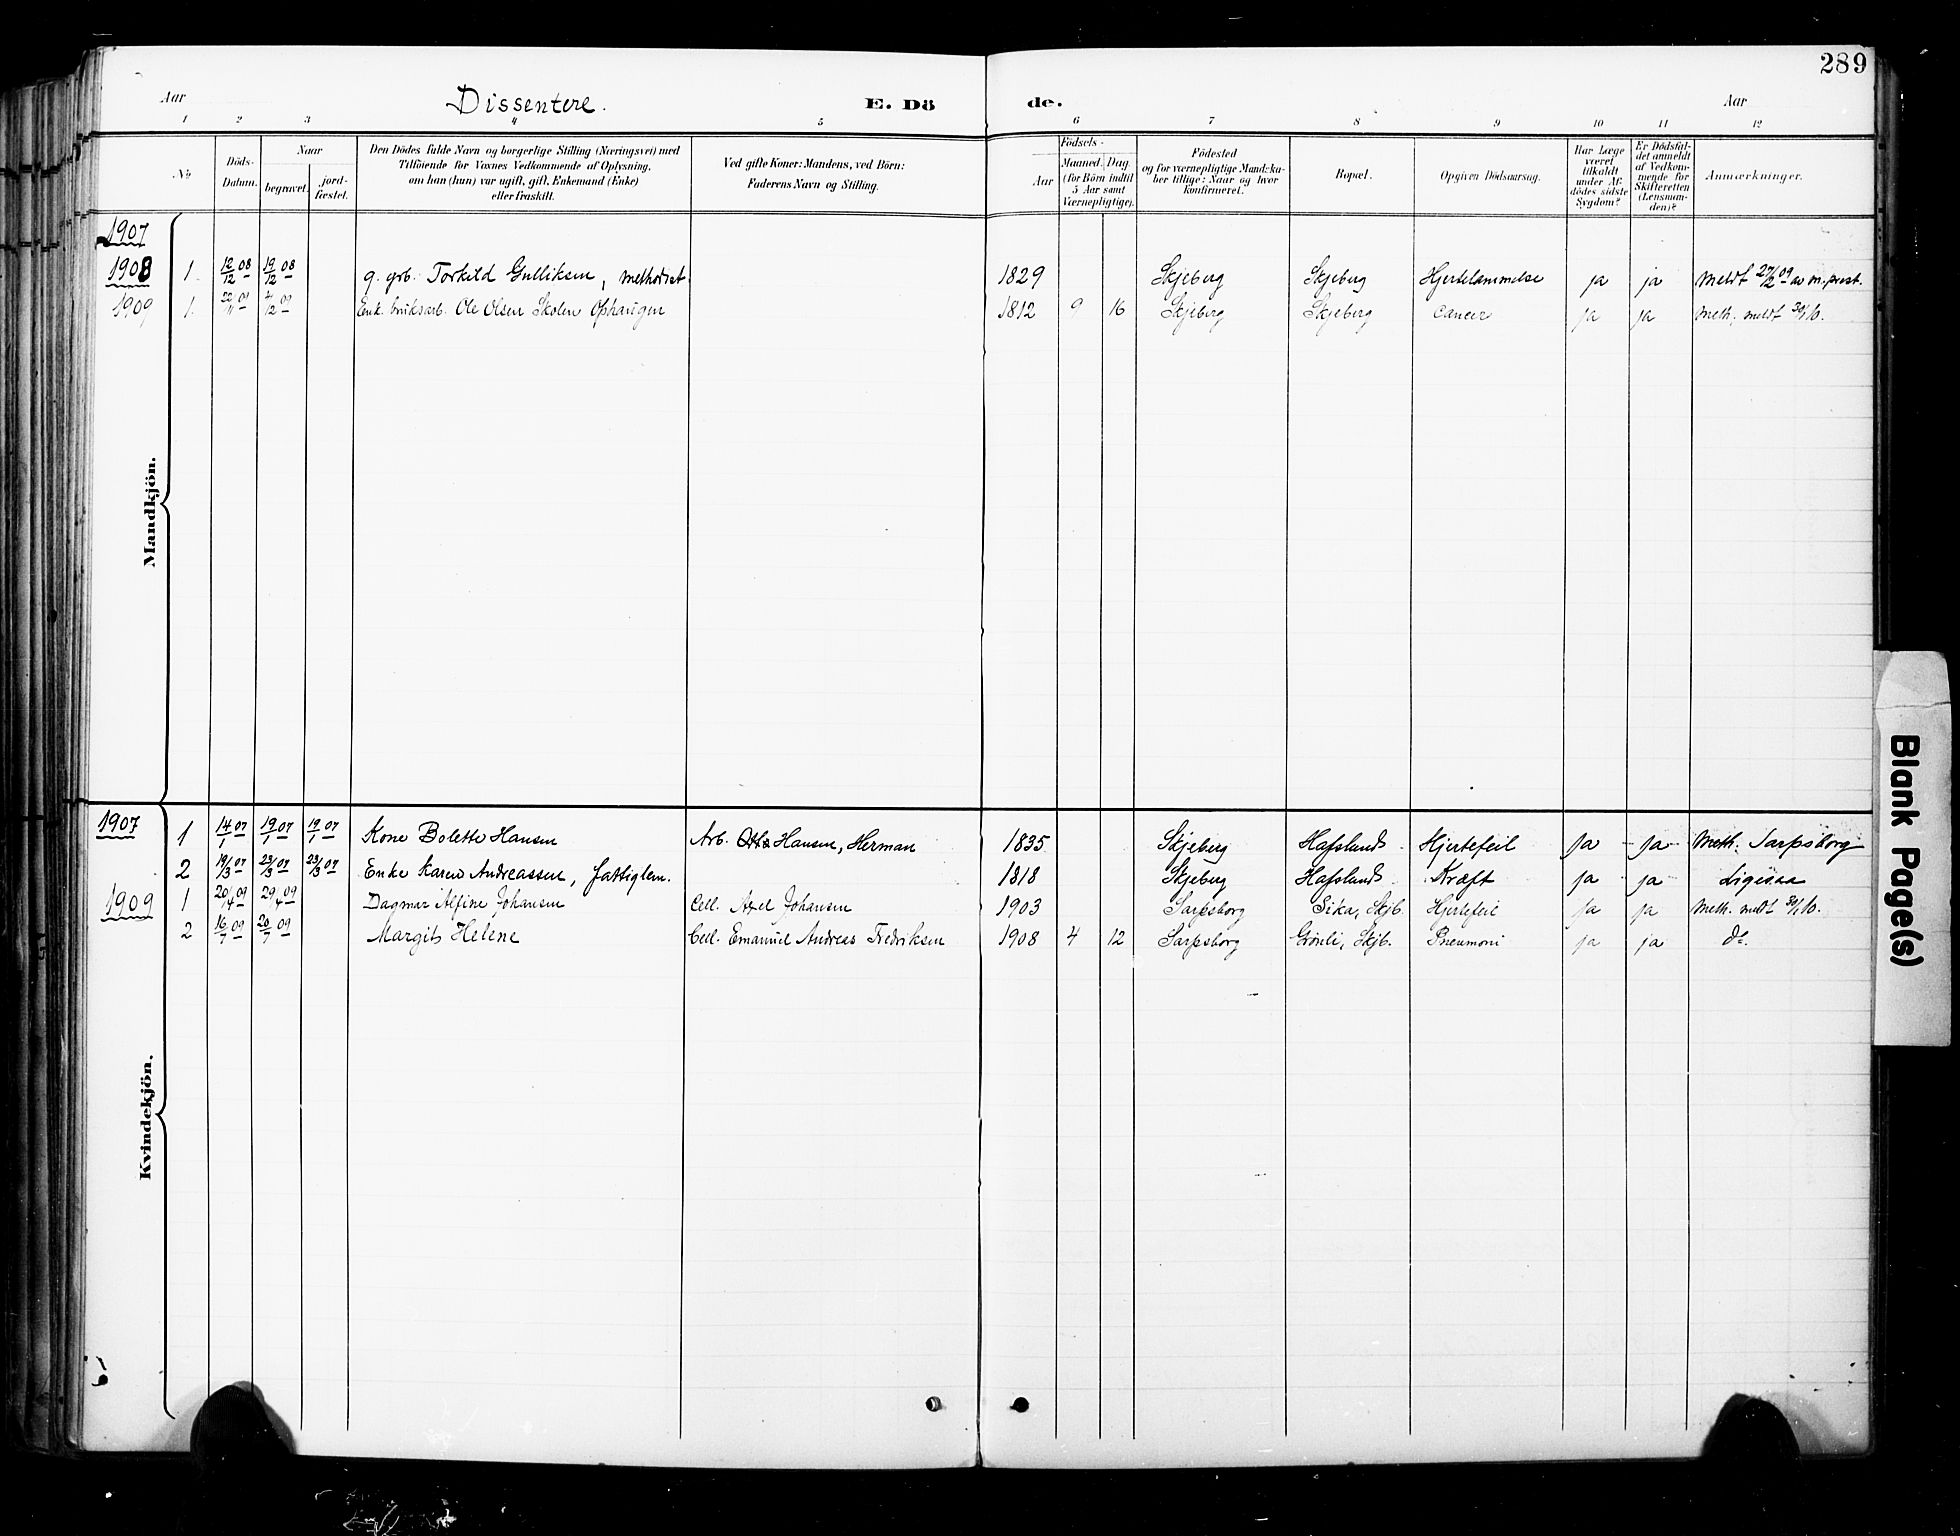 289
Aar Dissentere. E. Dö de. Aar
1 2 3 4 5 6 7 8 9 10 11 12
No.
Döds-Datum.
Naar
begravet.
jord-fæstet.
Den Dödes fulde Navn og borgerlige Stilling (Næringsvei) med
Tilföiende for Voxnes Vedkommende af Oplysning,
om han (hun) var ugift, gift, Enkemand (Enke)
eller fraskilt.
Ved gifte Koner: Mandens, ved Börn:
Faderens Navn og Stilling.
Födsels-
Aar
Maaned. Dag.
(for Börn indtil
5 Aar samt
Værnepligtige).
Födested
og for værnepligtige Mandska-
ber tillige: Naar og hvor
konfirmeret.
Bopæl.
Opgiven Dödsaarsag.
Har Læge
været
tilkaldt
under Af-
dødes sidste
Sygdom?
Er Dödsfal-
det anmeldt
af Vedkom-
mende for
Skifteretten
(Lensman-
den)?
Anmærkninger.
Mandkjön.
1907
1908 1. 12/12 08 19/12 08 g. grb. Torkild Gulliksen, methodist 1829 Skjeberg Skjeberg Hjertelammelse ja ja Meldt 27/2 09 av m. prest.
1909 1. 4/12 09 Enk. bruksarb. Ole Olsen Skolen Ophaugen 1812 9 16 Skjeberg Skjeberg Cancer ja ja Meth. meldt
Kvindekjön.
1907 1 14/1 07 19/1 07 19/1 07 Kone Bolette Hansen Arb. Hansen, Herman 1835 Skjeberg Hafslund Hjertefeil ja ja Meth. Sarpsborg
2 19/3 07 23/3 07 23/3 07 Enke Karen Andreassen, fattiglem. 1818 Skjeberg Hafslund Kræft ja ja Ligesaa
1909 1 20/4 09 29/4 09 Dagmar Alfine Johansen Cell. Axel Johansen 1903 Sarpsborg Sika, Skjb. Hjertefeil ja ja Meth. meldt
2 16/7 09 20/7 09 Margit Helene Cell. Emanuel Andreas Fredriksen 1908 4 12 Sarpsborg Grönli, Skjb. Pneumoni ja ja do.
Blank Page(s)